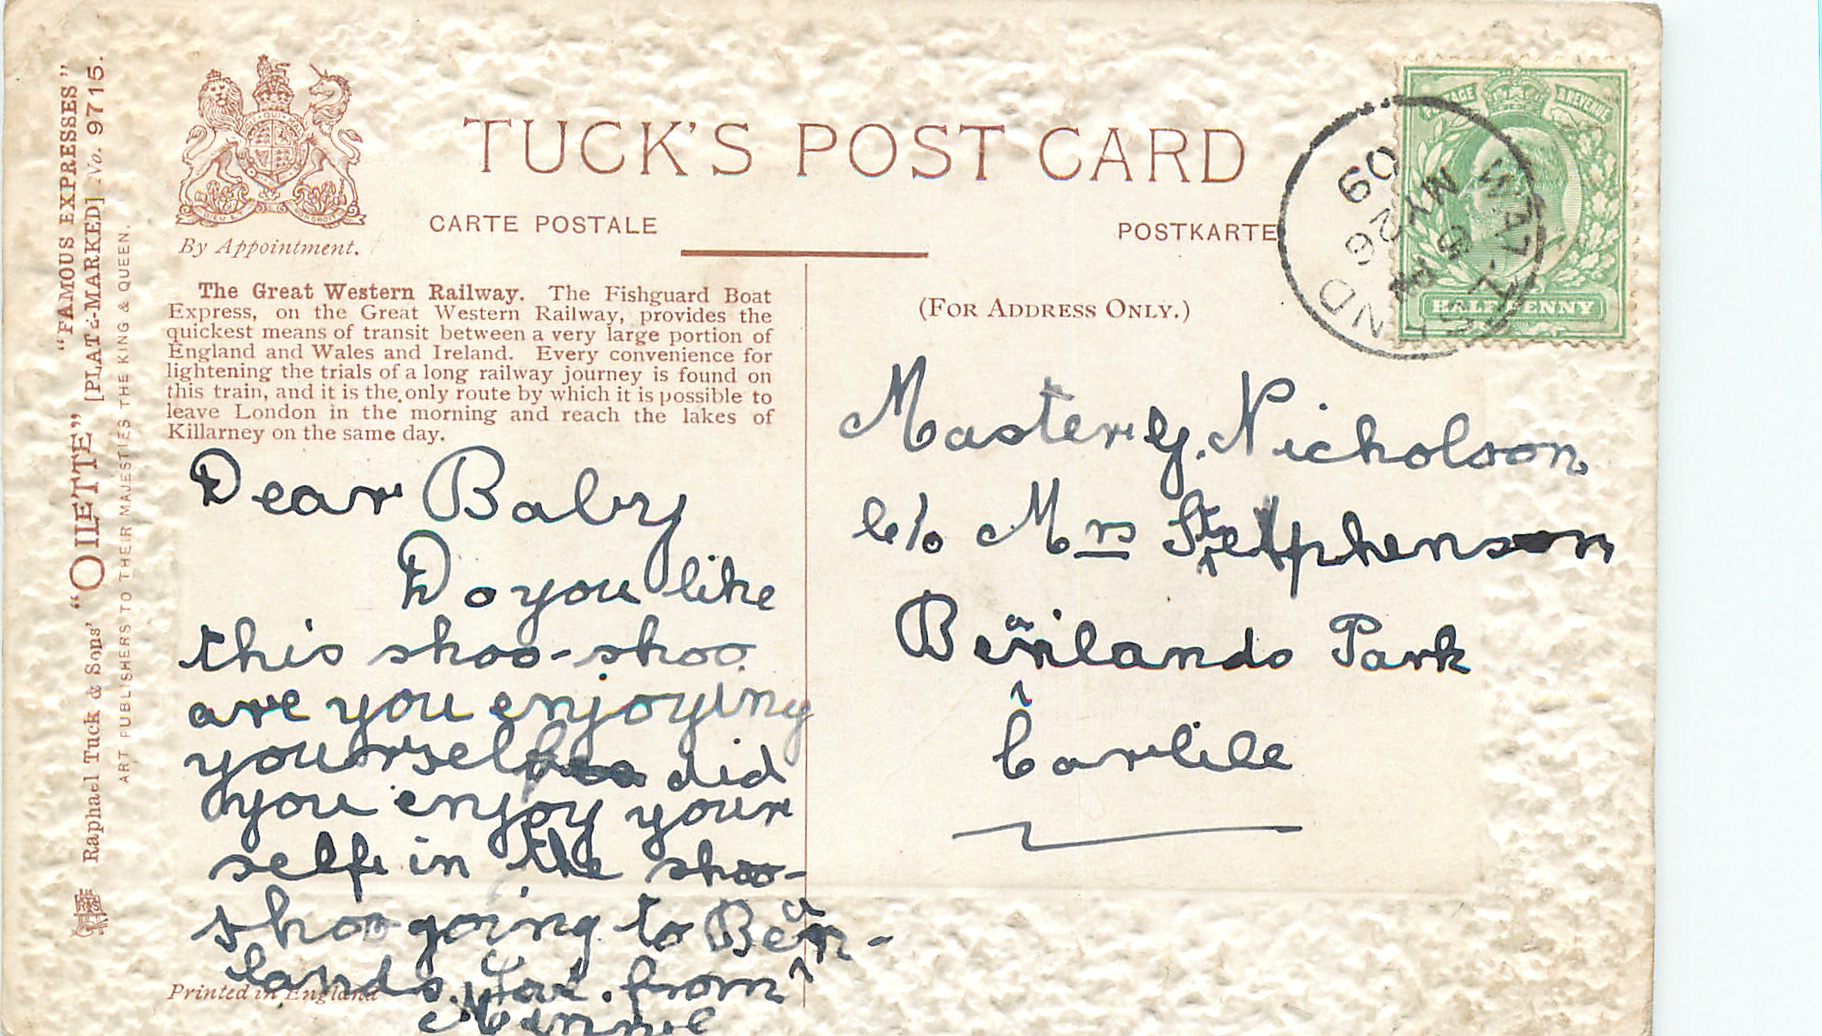 "FAMOUS EXPRESSES"
[PLATE-MARKED] No. 9715.
Raphael Tuck & Sons' "OILETTE"
ART PUBLISHERS TO THEIR MAJESTIES THE KING & QUEEN.
By Appointment.
TUCK'S POST CARD
CARTE POSTALE
POSTKARTE
(FOR ADDRESS ONLY.)
POSTAGE & REVENUE
HALFPENNY
MY 26
09
The Great Western Railway. The Fishguard Boat
Express, on the Great Western Railway, provides the
quickest means of transit between a very large portion of
England and Wales and Ireland. Every convenience for
lightening the trials of a long railway journey is found on
this train, and it is the only route by which it is possible to
leave London in the morning and reach the lakes of
Killarney on the same day.
Dear Baby
Do you like
this shoo-shoo.
are you enjoying
yourself did
you enjoy your
self in the shoo-
shoo going to Bean-
lands. from
Minnie
Printed in England
Master G. Nicholson
c/o Mrs Stephenson
Beanlands Park
Carlile